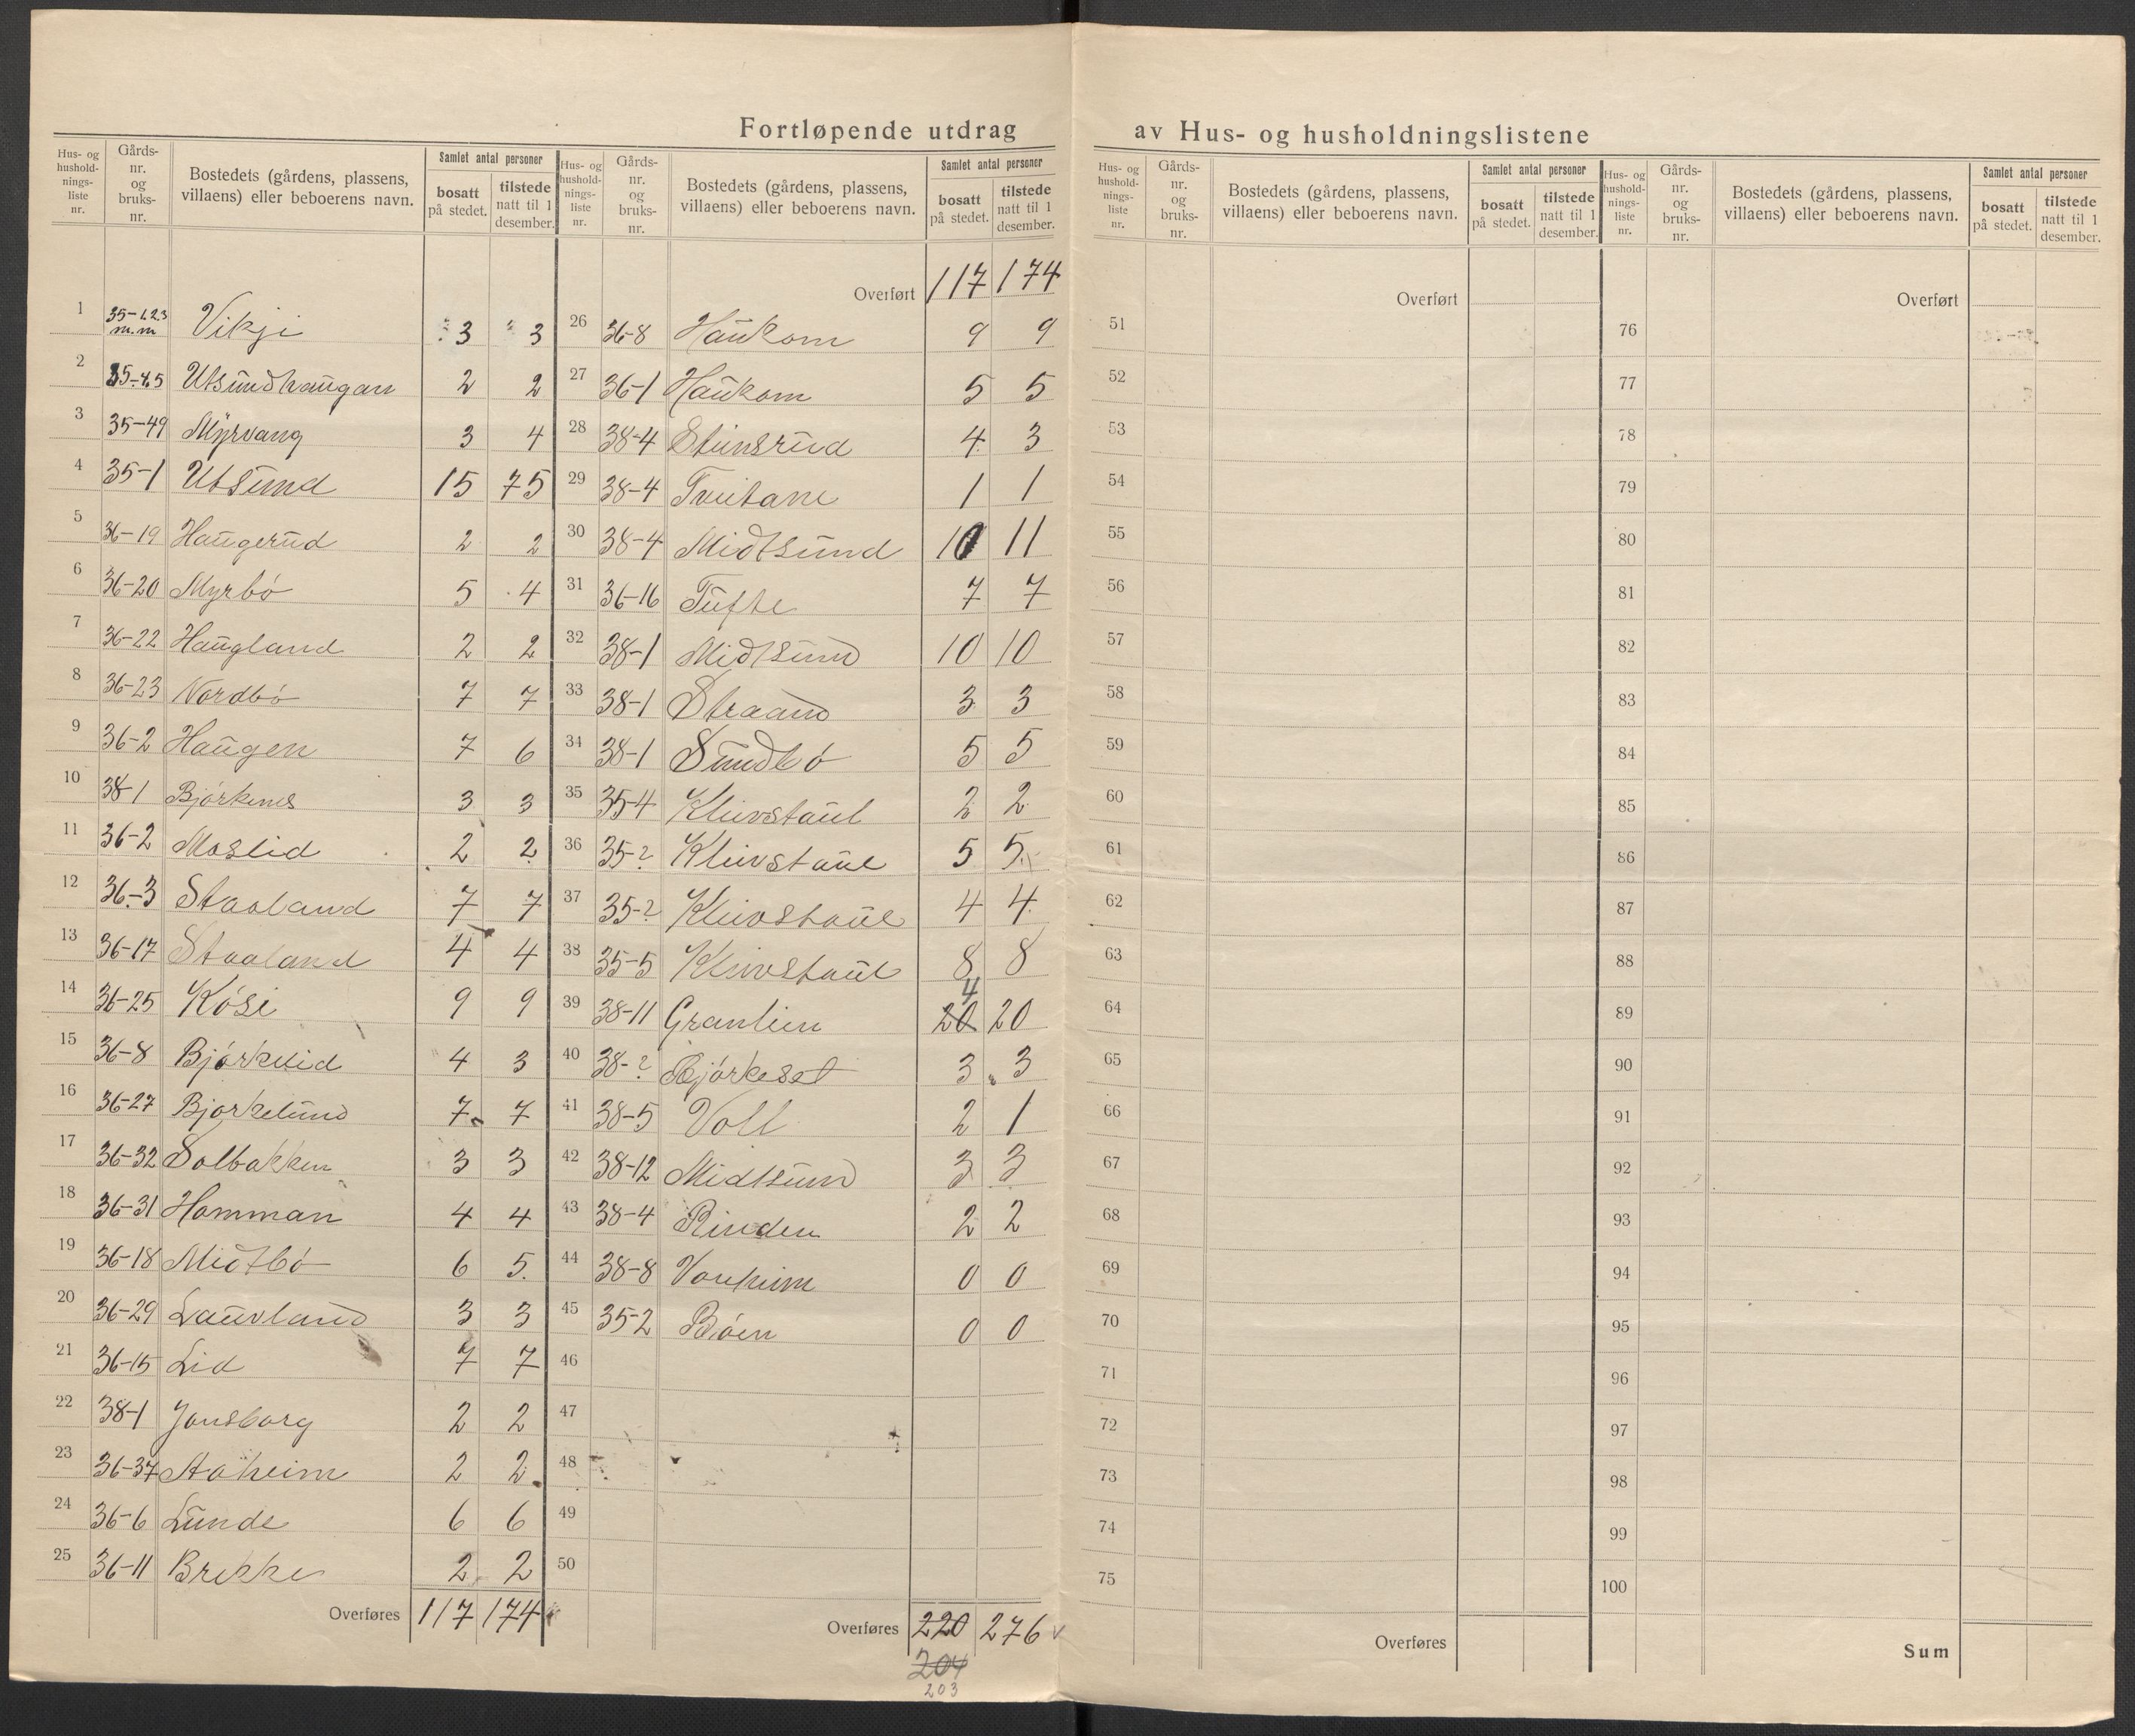 Fortløpende utdrag av Hus- og husholdningslistene
Hus- og hushold-nings-liste nr. | Gårds-nr. og bruks-nr. | Bostedets (gårdens, plassens, villaens) eller beboerens navn. | Samlet antal personer | bosatt på stedet. | tilstede natt til 1 desember.
1 35-1.2.3 m.m Vikji 3 3
2 35-4.5 Utsundhaugan 2 2
3 35-49 Myrvang 3 4
4 35-1 Utsund 15 75
5 36-19 Haugerud 2 2
6 36-20 Myrbó 5 4
7 36-22 Haugland 2 2
8 36-23 Nordbó 7 7
9 36-2 Haugen 7 6
10 38-1 Björkenes 3 3
11 36-2 Moslid 2 2
12 36-3 Staaland 7 7
13 36-17 Staaland 4 4
14 36-25 Kósi 9 9
15 36-8 Bjórkelid 4 3
16 36-27 Bjorkelund 7 7
17 36-32 Solbakken 3 3
18 36-31 Homman 4 4
19 36-18 Midtbó 6 5
20 36-29 Lauvland 3 3
21 36-15 Lid 7 7
22 38-1 Jonsborg 2 2
23 36-37 Aaheim 2 2
24 36-6 Lunde 6 6
25 36-11 Brekke 2 2
Overføres 117 174
Hus- og hushold-nings-liste nr. | Gårds-nr. og bruks-nr. | Bostedets (gårdens, plassens, villaens) eller beboerens navn. | Samlet antal personer | bosatt på stedet. | tilstede natt til 1 desember.
Overført 117 174
26 36-8 Haukom 9 9
27 36-1 Haukom 5 5
28 38-4 Steinsrud 4 3
29 38-4 Tveitane 1 1
30 38-4 Midtsund 10 11
31 36-16 Tufte 7 7
32 38-1 Midtsund 10 10
33 38-1 Straand 3 3
34 38-1 Sundbó 5 5
35 35-4 Kleivstaul 2 2
36 35-? Kleivstaul 5 5
37 35-? Kleivstaul 4 4
38 35-5 Kleivstaul 8 8
39 38-11 Granlien 20 4 20
40 38-? Bjórkeset 3 3
41 38-5 Voll 2 1
42 38-12 Midtsund 3 3
43 38-4 Rinden 2 2
44 38-8 Vonheim 0 0
45 35-2 Bóen 0 0
46
47
48
49
50
Overføres 220 276
204
203
Hus- og hushold-nings-liste nr. | Gårds-nr. og bruks-nr. | Bostedets (gårdens, plassens, villaens) eller beboerens navn. | Samlet antal personer | bosatt på stedet. | tilstede natt til 1 desember.
Overført
51
52
53
54
55
56
57
58
59
60
61
62
63
64
65
66
67
68
69
70
71
72
73
74
75
Overføres
Hus- og hushold-nings-liste nr. | Gårds-nr. og bruks-nr. | Bostedets (gårdens, plassens, villaens) eller beboerens navn. | Samlet antal personer | bosatt på stedet. | tilstede natt til 1 desember.
Overført
76
77
78
79
80
81
82
83
84
85
86
87
88
89
90
91
92
93
94
95
96
97
98
99
100
Sum